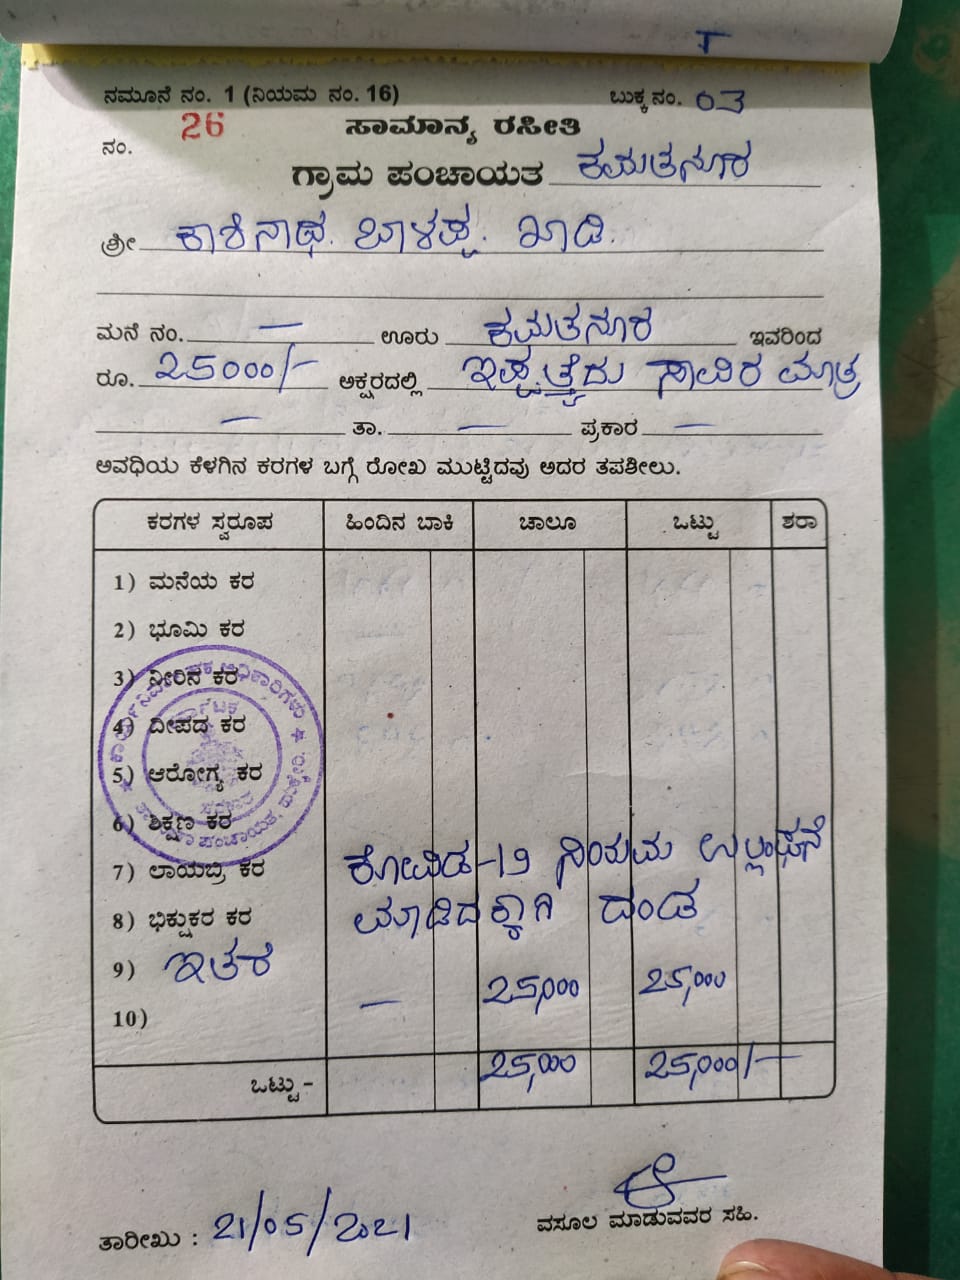 ನಮೂನೆ ನಂ. 1 (ನಿಯಮ ನಂ. 16) ಬುಕ್ಕ ನಂ. 03
ನಂ. 26 ಸಾಮಾನ್ಯ ರಸೀತಿ
ಗ್ರಾಮ ಪಂಚಾಯತ ಕಮತನೂರ
ಶ್ರೀ ಕಾಶಿನಾಥ. ಬಾಳಪ್ಪ. ಖಾಡಿ.
ಮನೆ ನಂ. — ಊರು ಕಮತನೂರ ಇವರಿಂದ
ರೂ. 25000/- ಅಕ್ಷರದಲ್ಲಿ ಇಪ್ಪತ್ತೈದು ಸಾವಿರ ಮಾತ್ರ
— ತಾ. — ಪ್ರಕಾರ —
ಅವಧಿಯ ಕೆಳಗಿನ ಕರಗಳ ಬಗ್ಗೆ ರೋಖ ಮುಟ್ಟಿದವು ಅದರ ತಪಶೀಲು.
ಕರಗಳ ಸ್ವರೂಪ ಹಿಂದಿನ ಬಾಕಿ ಚಾಲೂ ಒಟ್ಟು ಶರಾ
1) ಮನೆಯ ಕರ
2) ಭೂಮಿ ಕರ
3) ನೀರಿನ ಕರ
4) ದೀಪದ ಕರ
5) ಆರೋಗ್ಯ ಕರ
6) ಶಿಕ್ಷಣ ಕರ
7) ಲಾಯಬ್ರಿ ಕರ ಕೋವಿಡ-19 ನಿಯಮ ಉಲ್ಲಂಘನೆ
8) ಭಿಕ್ಷುಕರ ಕರ ಮಾಡಿದಕ್ಕಾಗಿ ದಂಡ
9) ಇತರ — 25,000 25,000
10)
ಒಟ್ಟು - 25,000 25,000/-
ತಾರೀಖು : 21/05/2021 ವಸೂಲ ಮಾಡುವವರ ಸಹಿ.